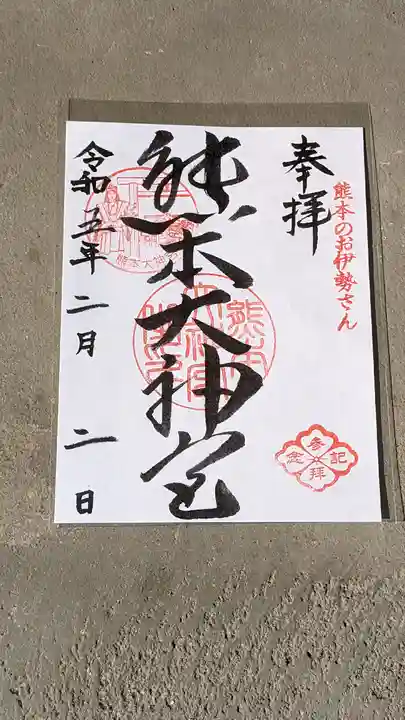 奉拝
熊本のお伊勢さん
参拝記念
熊本大神宮
熊本大神宮
令和五年二月二日